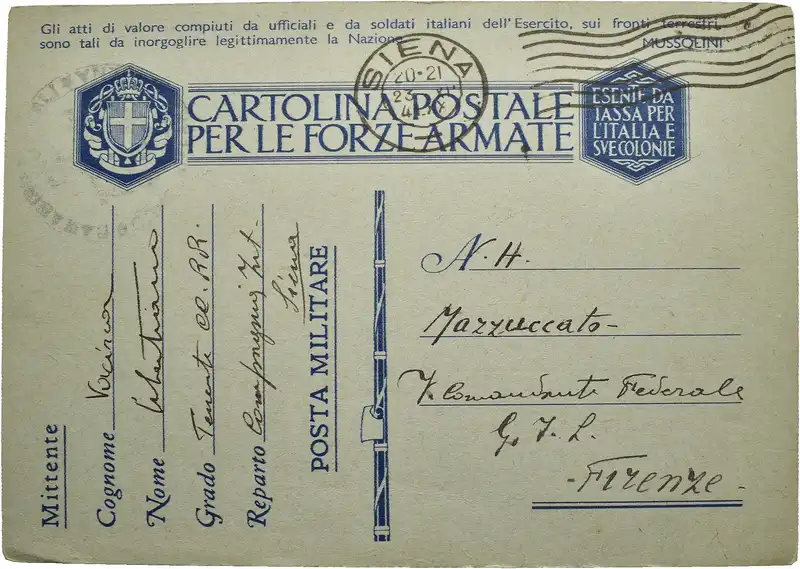 Gli atti di valore compiuti da ufficiali e da soldati italiani dell'Esercito, sui fronti terrestri,
sono tali da inorgoglire legittimamente la Nazione.
MUSSOLINI
SIENA
20-21
23
CARTOLINA POSTALE
PER LE FORZE ARMATE
ESENTE DA
TASSA PER
L'ITALIA E
SVE COLONIE
Mittente
Cognome
Nome
Grado Tenente CC. RR.
Reparto Compagnia Int.
Siena
POSTA MILITARE
N. H.
Mazzuccato-
V. Comandante Federale
G. I. L.
-Firenze-